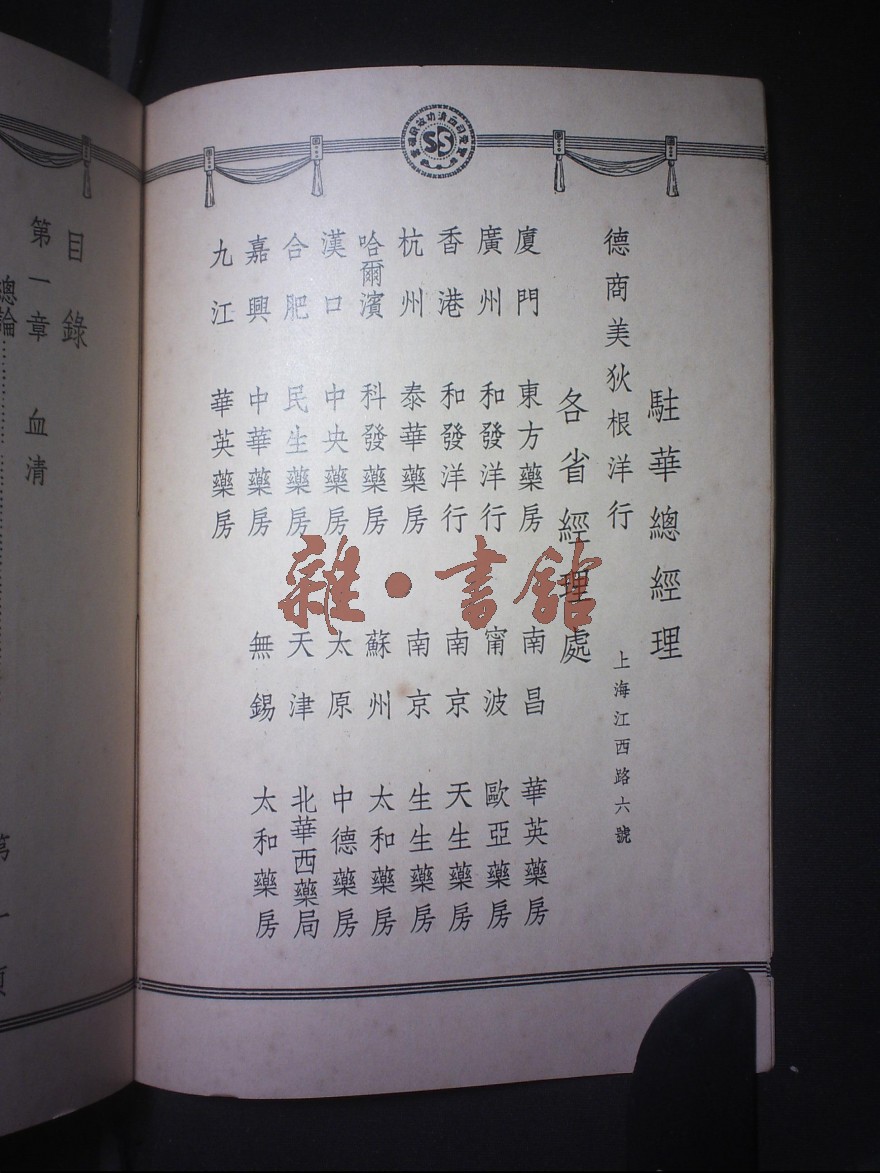 駐華總經理
德商美狄根洋行 上海江西路六號
各省經理處
廈門 東方藥房 南昌 華英藥房
廣州 和發洋行 甯波 歐亞藥房
香港 和發洋行 南京 天生藥房
杭州 泰華藥房 南京 生生藥房
哈爾濱 科發藥房 蘇州 太和藥房
漢口 中央藥房 太原 中德藥房
合肥 民生藥房 天津 北華西藥局
嘉興 中華藥房 無錫 太和藥房
九江 華英藥房
目錄
第一章 血清 第一頁
總論
雜·書館